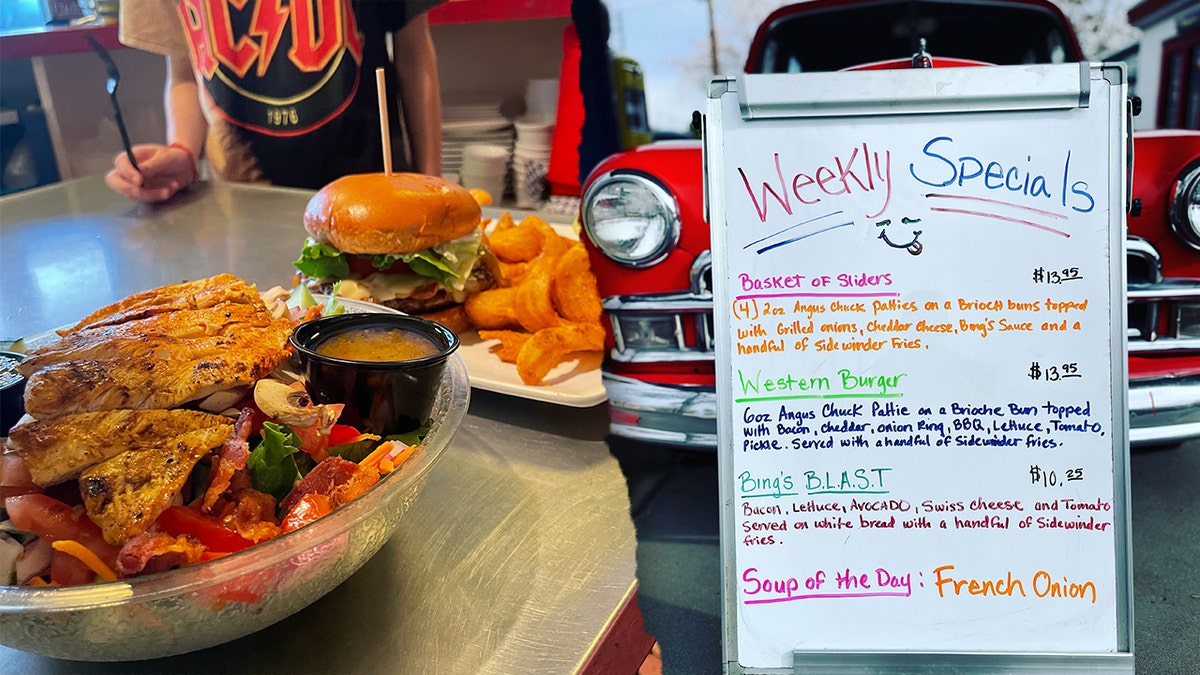 AC/DC
1976
Weekly Specials
Basket of Sliders $13.95
(4) 2oz Angus Chuck Patties on a Brioch buns topped
with Grilled onions, Cheddar Cheese, Bing's Sauce and a
handful of Sidewinder Fries.
Western Burger $13.95
6oz Angus Chuck Pattie on a Brioche Bun topped
with Bacon, Cheddar, onion Ring, BBQ, Lettuce, Tomato,
Pickle. Served with a handful of Sidewinder fries.
Bing's B.L.A.S.T $10.25
Bacon, Lettuce, AVOCADO, Swiss cheese and Tomato
Served on white bread with a handful of Sidewinder
fries.
Soup of the Day: French Onion